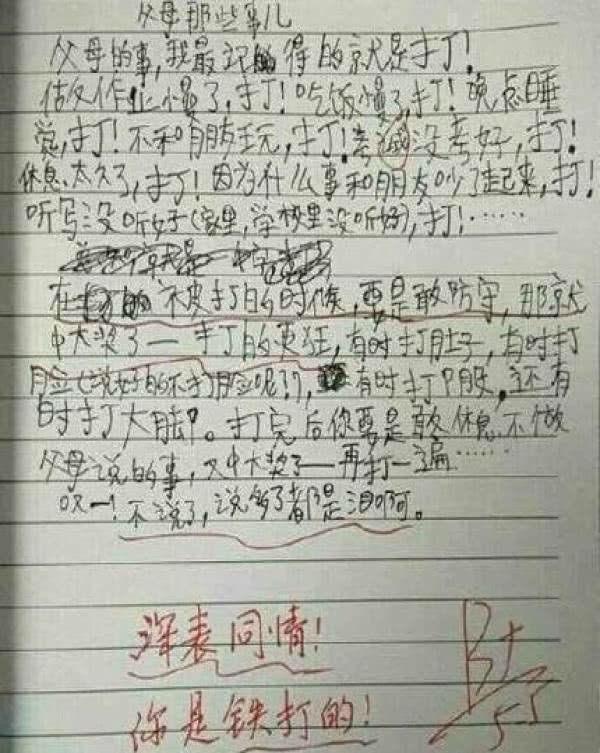 父母那些事儿
父母的事,我最记得的就是打!
做作业慢了,打!吃饭慢了,打!晚点睡
觉,打!不和朋友玩,打!考试没考好,打!
休息太久了,打!因为什么事和朋友吵了起来,打!
听写没听好(家里,学校里没听好),打!……
在被打的时候,要是敢防守,那就
中大奖了——打的更狂,有时打肚子,有时打
脸(说好的不打脸呢?),有时打屁股,还有
时打大腿。打完后你要是敢休息,不做
父母说的事,又中大奖了——再打一遍……
哎!不说了,说多了都是泪啊。
深表同情!
你是铁打的!
B+